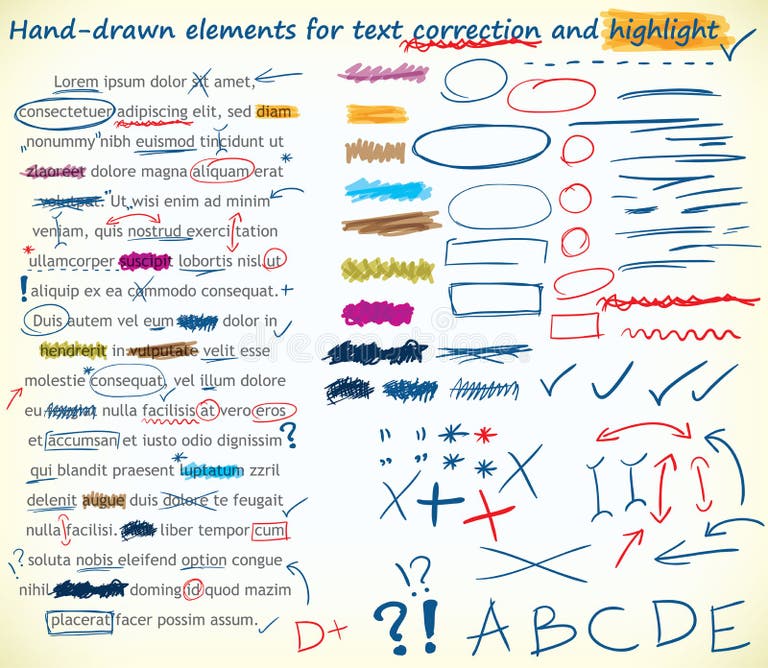 Hand-drawn elements for text correction and highlight
Lorem ipsum dolor sit amet,
consectetuer adipiscing elit, sed diam
nonummy nibh euismod tincidunt ut
zlaoreet dolore magna aliquam erat
volutpat. Ut wisi enim ad minim
veniam, quis nostrud exerci tation
ullamcorper suscipit lobortis nisl ut
aliquip ex ea commodo consequat.
Duis autem vel eum dolor in
hendrerit in vulputate velit esse
molestie consequat, vel illum dolore
eu nulla facilisis at vero eros
et accumsan et iusto odio dignissim ?
qui blandit praesent luptatum zzril
delenit augue duis dolore te feugait
nulla facilisi. liber tempor cum
!? soluta nobis eleifend option congue
nihil doming id quod mazim
placerat facer possim assum.
D+ ?! !? A B C D E